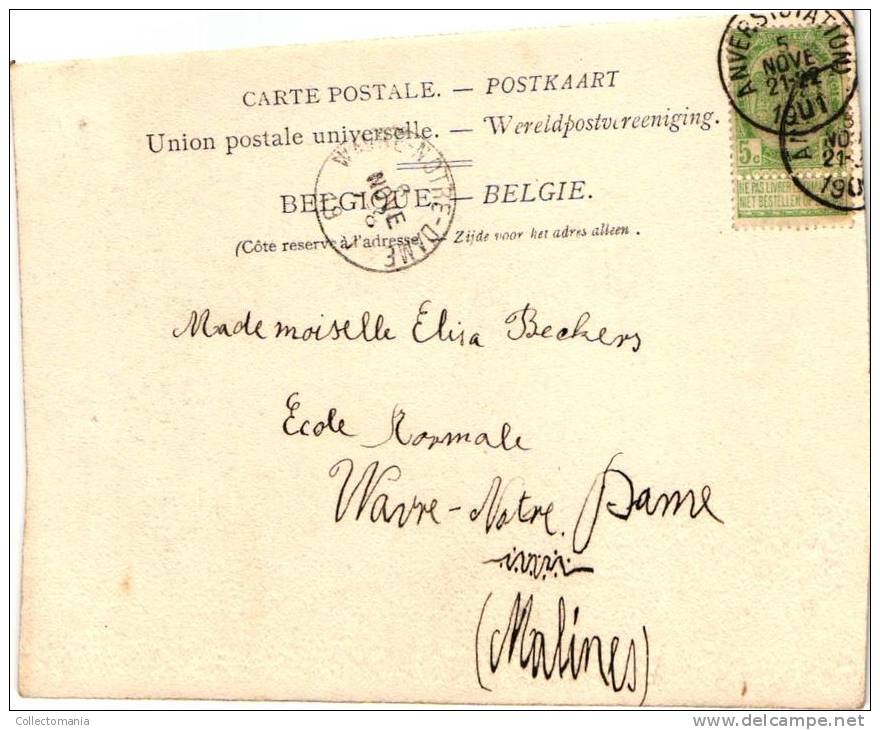 CARTE POSTALE. — POSTKAART
Union postale universelle. — Wereldpostvereeniging.
BELGIQUE. — BELGIE.
(Côte reservé à l'adresse. — Zijde voor het adres alleen.
ANVERS (STATION)
5
NOVE
21-22
1901
NOVE
21-
190
5c
NE PAS LIVRER
NIET BESTELLEN OP
WAVRE-NOTRE-DAME
6
NOVE
Mademoiselle Elisa Beckers
Ecole Normale
Wavre-Notre Dame
(Malines)
Collectomania
www.delcampe.net